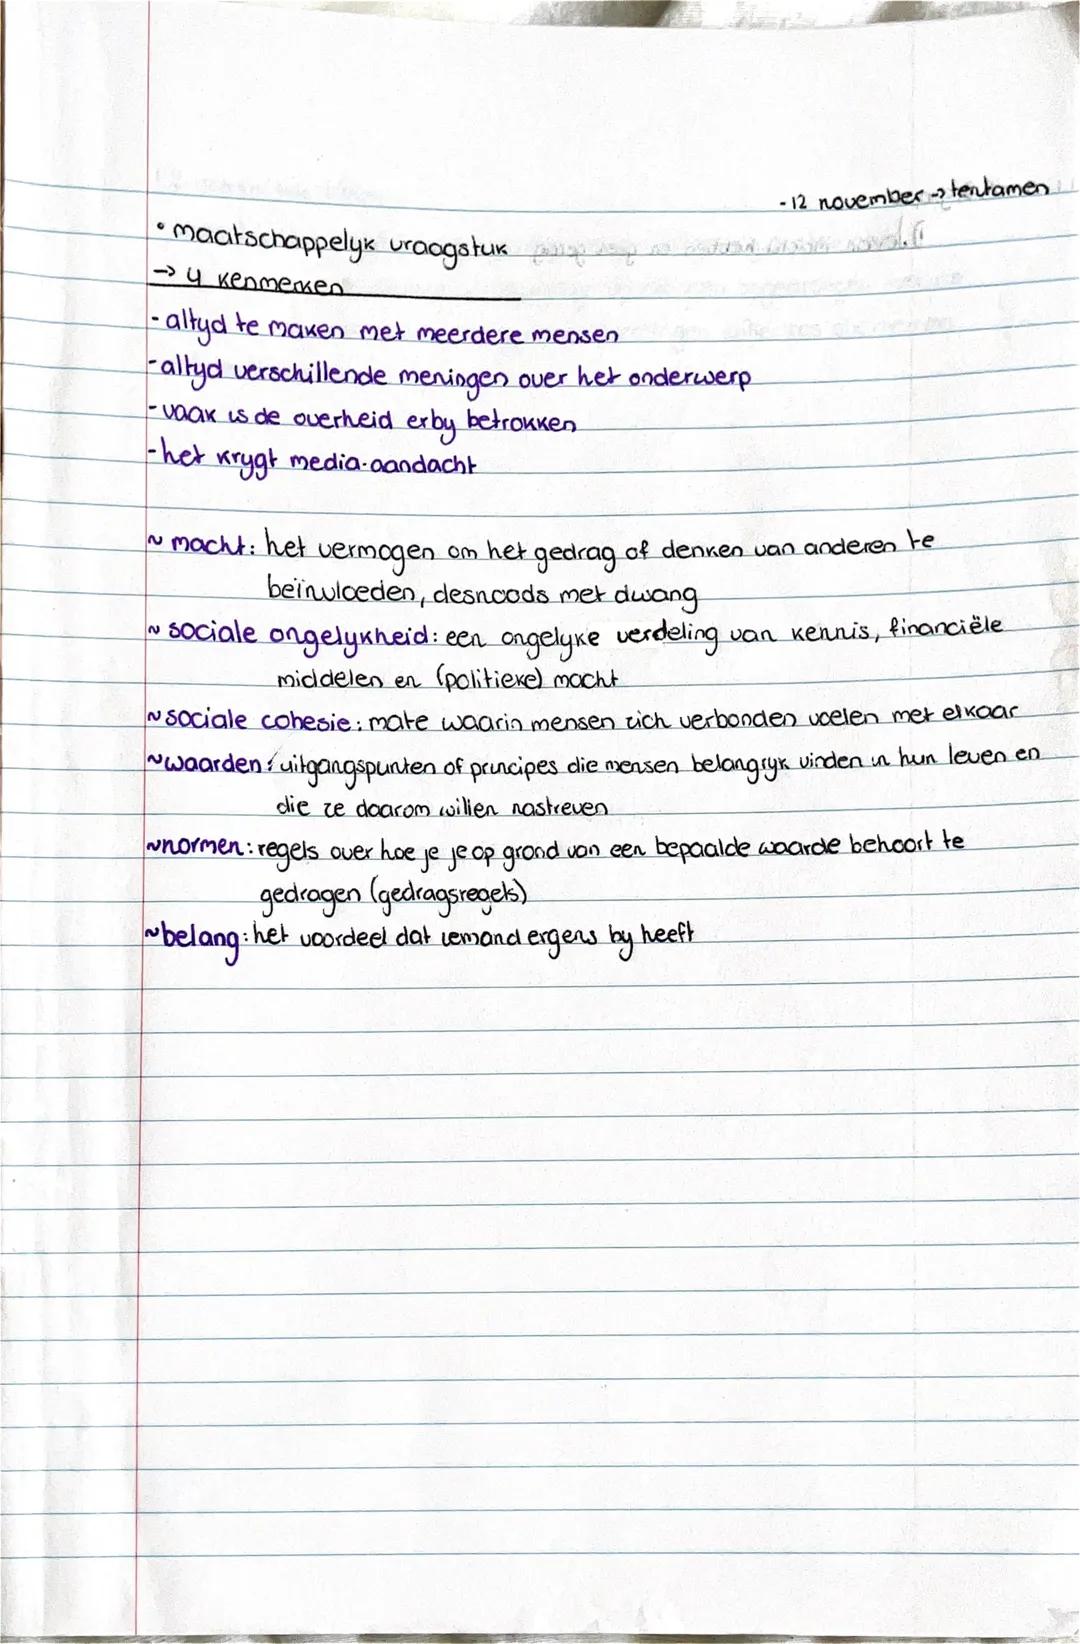 - 12 november → tentamen
• maatschappelyk vraagstuk
→ 4 kenmerken
- altyd te maken met meerdere mensen
- altyd verschillende meningen over het onderwerp
- vaak is de overheid erby betrokken
- het krygt media-aandacht
~ macht: het vermogen om het gedrag of denken van anderen te
beïnvloeden, desnoods met dwang
~ sociale ongelykheid: een ongelyke verdeling van kennis, financiële
middelen en (politieke) macht
~ sociale cohesie: mate waarin mensen zich verbonden voelen met elkaar
~ waarden: uitgangspunten of principes die mensen belangryk vinden in hun leven en
die ze daarom willen nastreven
~ normen: regels over hoe je je op grond van een bepaalde waarde behoort te
gedragen (gedragsregels)
~ belang: het voordeel dat iemand ergens by heeft